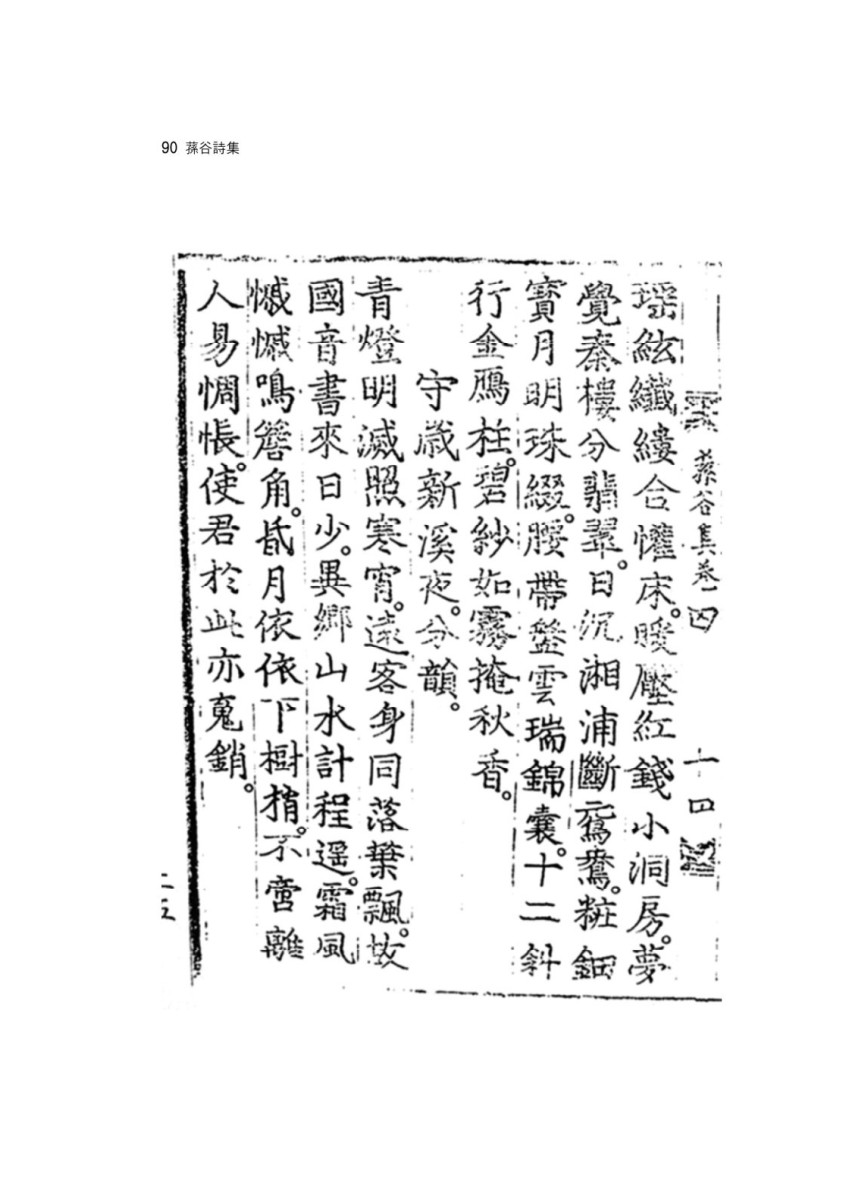 90 蓀谷詩集
蓀谷集卷四 十四
瑶絃纖縷合懽床。暖壓紅錢小洞房。夢
覺秦樓分翡翠。日沉湘浦斷鴛鴦。粧鈿
寶月明珠綴。腰帶盤雲瑞錦囊。十二斜
行金鴈柱。碧紗如霧掩秋香。
守歲新溪夜。分韻。
青燈明滅照寒宵。遠客身同落葉飄。故
國音書來日少。異鄉山水計程遥。霜風
慽慽鳴簷角。氐月依依下樹梢。不啻離
人易惆悵。使君於此亦䰟銷。